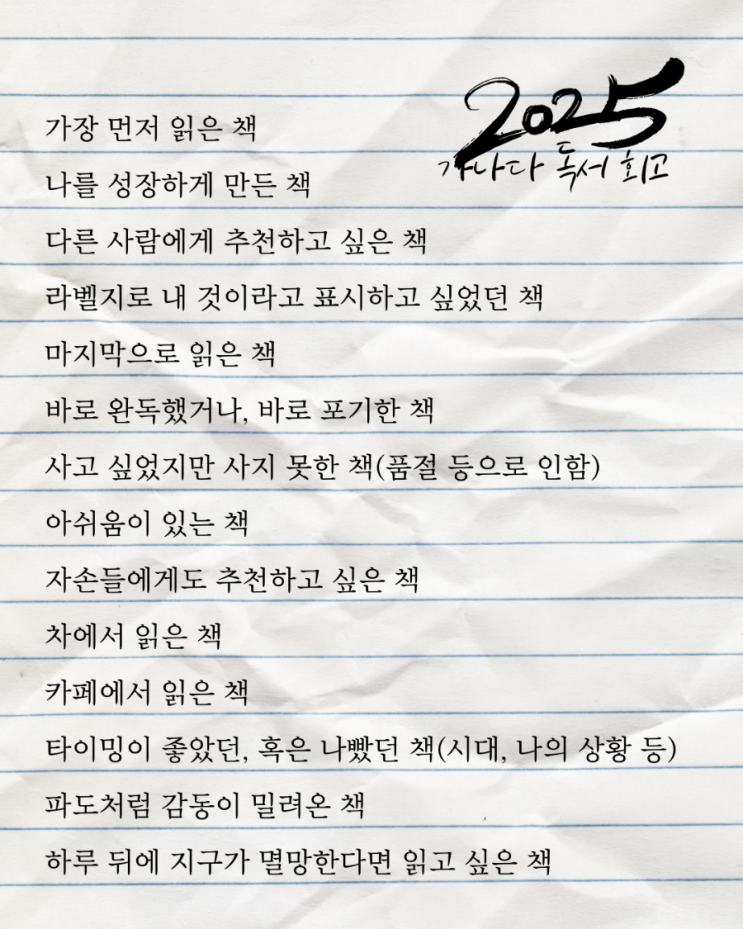 2025
가나다 독서 회고
가장 먼저 읽은 책
나를 성장하게 만든 책
다른 사람에게 추천하고 싶은 책
라벨지로 내 것이라고 표시하고 싶었던 책
마지막으로 읽은 책
바로 완독했거나, 바로 포기한 책
사고 싶었지만 사지 못한 책(품절 등으로 인함)
아쉬움이 있는 책
자손들에게도 추천하고 싶은 책
차에서 읽은 책
카페에서 읽은 책
타이밍이 좋았던, 혹은 나빴던 책(시대, 나의 상황 등)
파도처럼 감동이 밀려온 책
하루 뒤에 지구가 멸망한다면 읽고 싶은 책